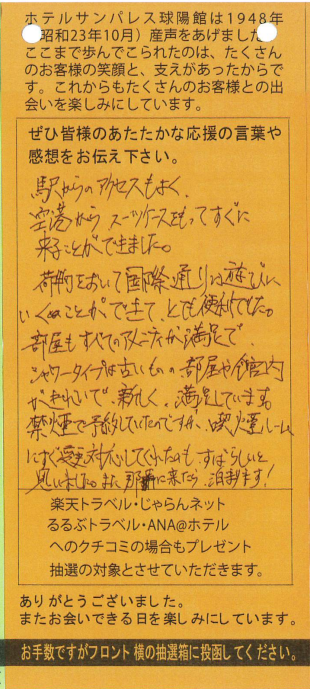 ホテルサンパレス球陽館は1948年
昭和23年10月）産声をあげました
ここまで歩んでこられたのは、たくさん
のお客様の笑顔と、支えがあったからで
す。これからもたくさんのお客様との出
会いを楽しみにしています。
ぜひ皆様のあたたかな応援の言葉や
感想をお伝え下さい。
駅からのアクセスもよく、
空港からスーツケースをもってすぐに
来ることができました。
荷物をおいて国際通りに遊びに
いくことができて、とても便利でした。
部屋もすべてのアメニティが満足で、
シャワータイプは古いものの部屋や館内
がきれいで、新しく、満足しています。
禁煙で予約していたのですが、喫煙ルーム
にすぐ変更対応してくれたのも、すばらしいと
思いました。また那覇に来たら、泊ります！
楽天トラベル・じゃらんネット
るるぶトラベル・ANA@ホテル
へのクチコミの場合もプレゼント
抽選の対象とさせていただきます。
ありがとうございました。
またお会いできる日を楽しみにしています。
お手数ですがフロント横の抽選箱に投函してください。